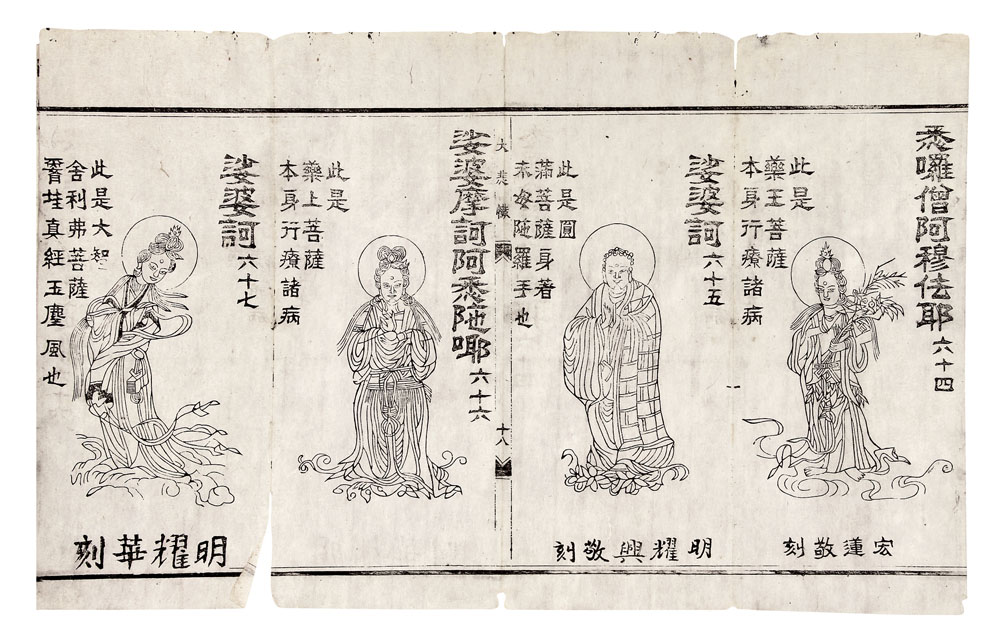 悉囉僧阿穆佉耶六十四
此是
藥王菩薩
本身行療諸病
宏蓮敬刻
娑婆訶六十五
此是圓
滿菩薩身着
陁羅手也
明耀興敬刻
大悲懺
十八
娑婆摩訶阿悉陁㖿六十六
此是
藥上菩薩
本身行療諸病
娑婆訶六十七
此是大智
舍利弗菩薩
挂真經玉塵風也
明耀華刻